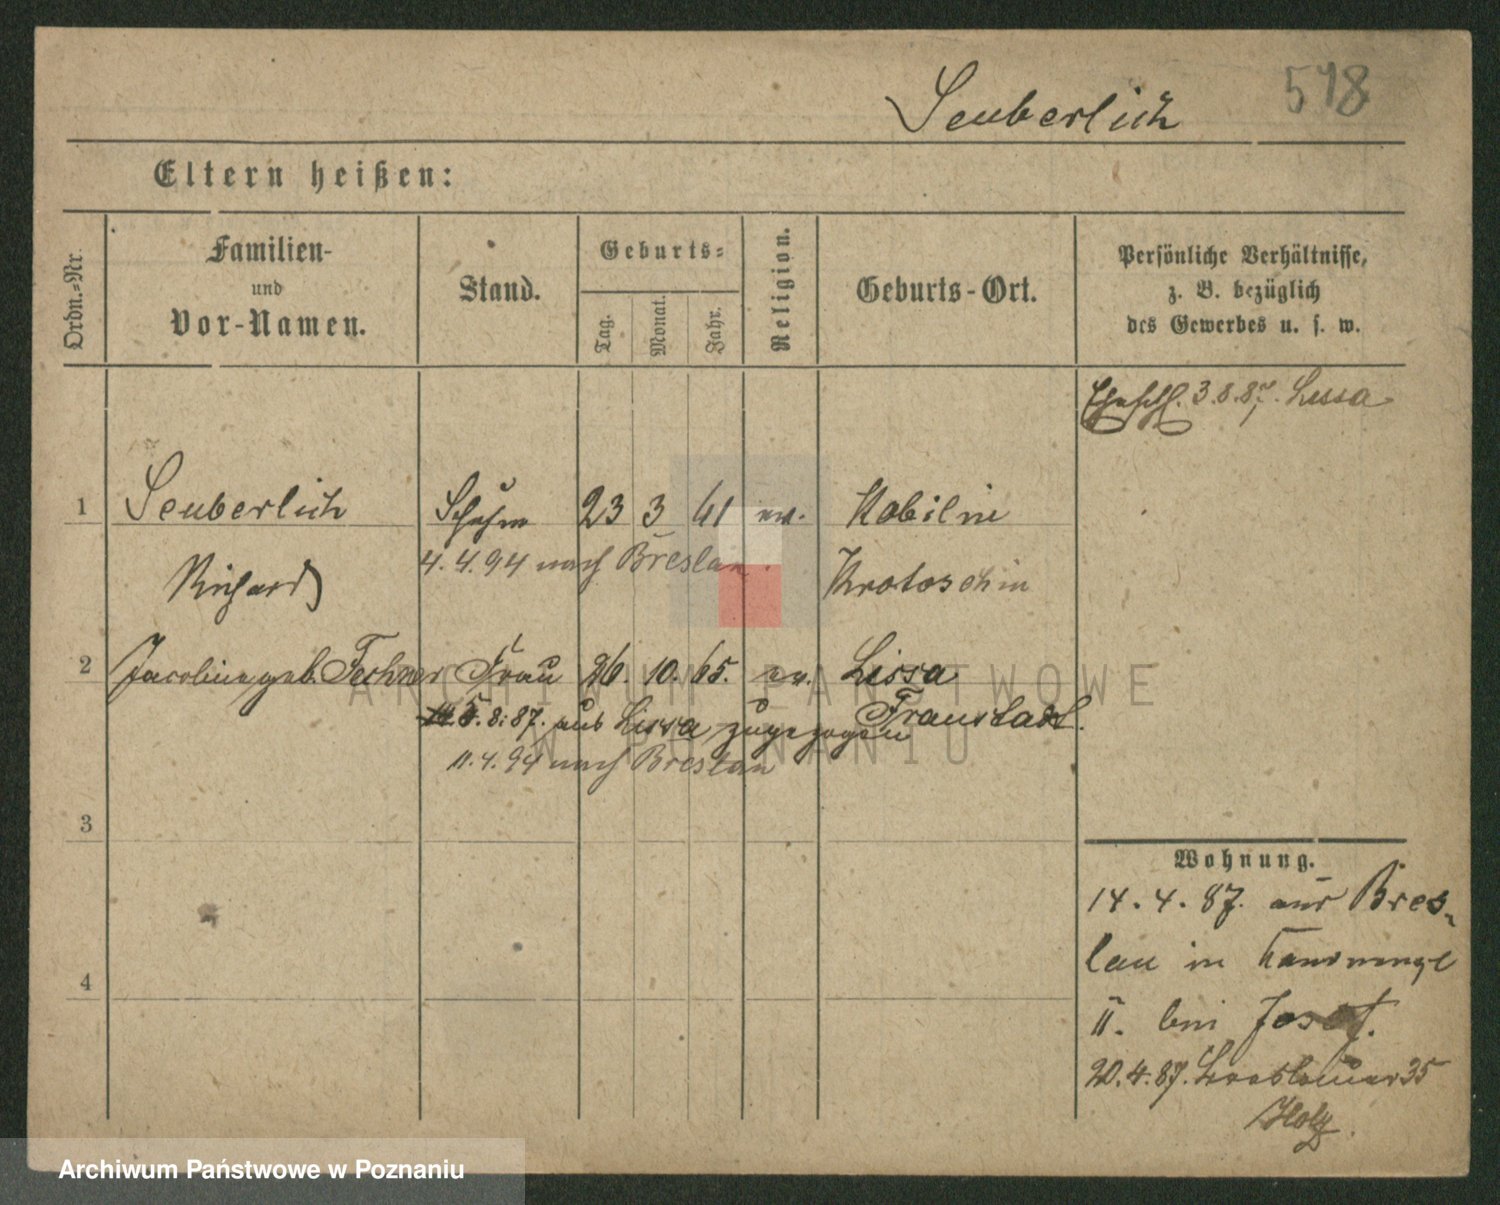 Seuberlich 518
Eltern heißen:
Ordn.-Nr.
Familien-
und
Vor-Namen.
Stand.
Geburts-
Tag.
Monat.
Jahr.
Religion.
Geburts-Ort.
Persönliche Verhältnisse,
z. B. bezüglich
des Gewerbes u. s. w.
3.8.87. Lissa
1 Seuberlich Schuhm 23 3 61 ev. Kobilin
4.4.94 nach Breslau
Richard Krotoschin
2 Jacobine geb. Fechner Frau 26. 10. 65. ev. Lissa
Fraustadt.
5.8.87. aus Lissa zugezogen
11.4.94 nach Breslau
3
4
Wohnung.
14.4.87. aus Bres-
lau in
II. bei Josef.
20.4.87. 35
Holz.
ARCHIWUM PAŃSTWOWE
W POZNANIU
Archiwum Państwowe w Poznaniu